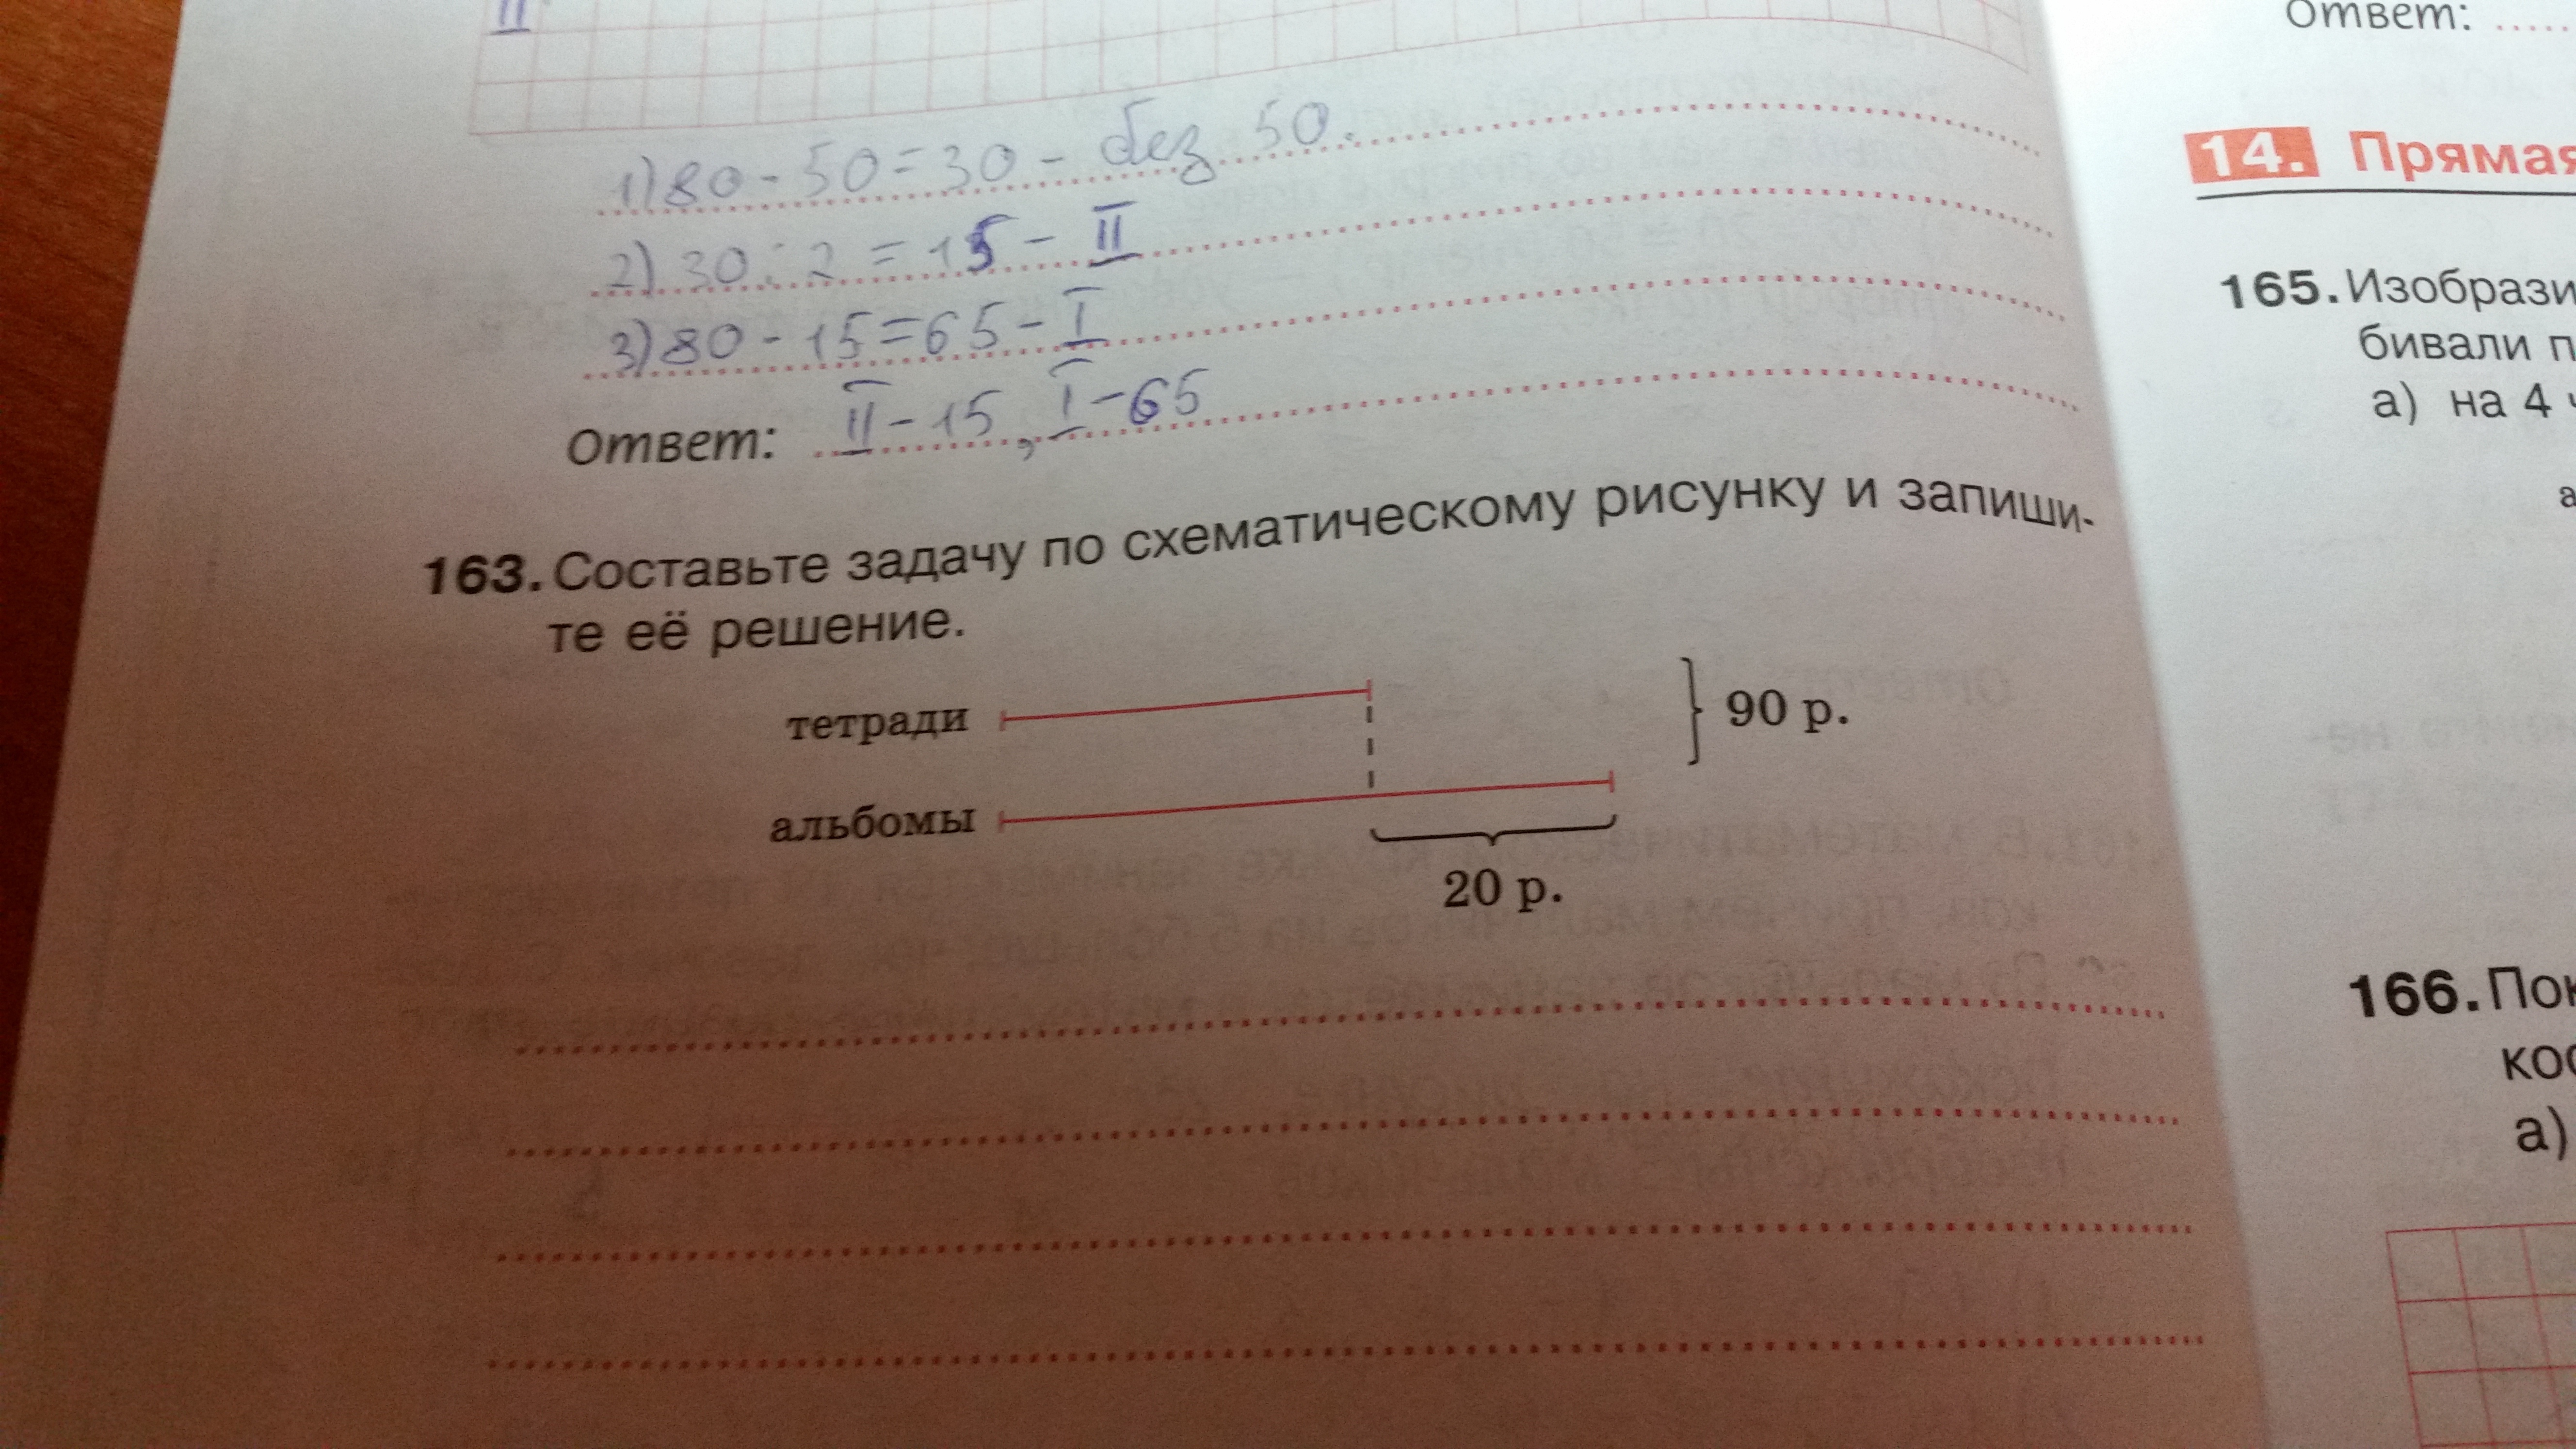 II
1) 80 - 50 = 30 - без 50.
2) 30 : 2 = 15 - II
3) 80 - 15 = 65 - I
Ответ: II - 15, I - 65
163. Составьте задачу по схематическому рисунку и запиши-
те её решение.
тетради
90 р.
альбомы
20 р.
Ответ:
14. Прямая
165. Изобрази
бивали п
а) на 4
166. Пок
кос
а)